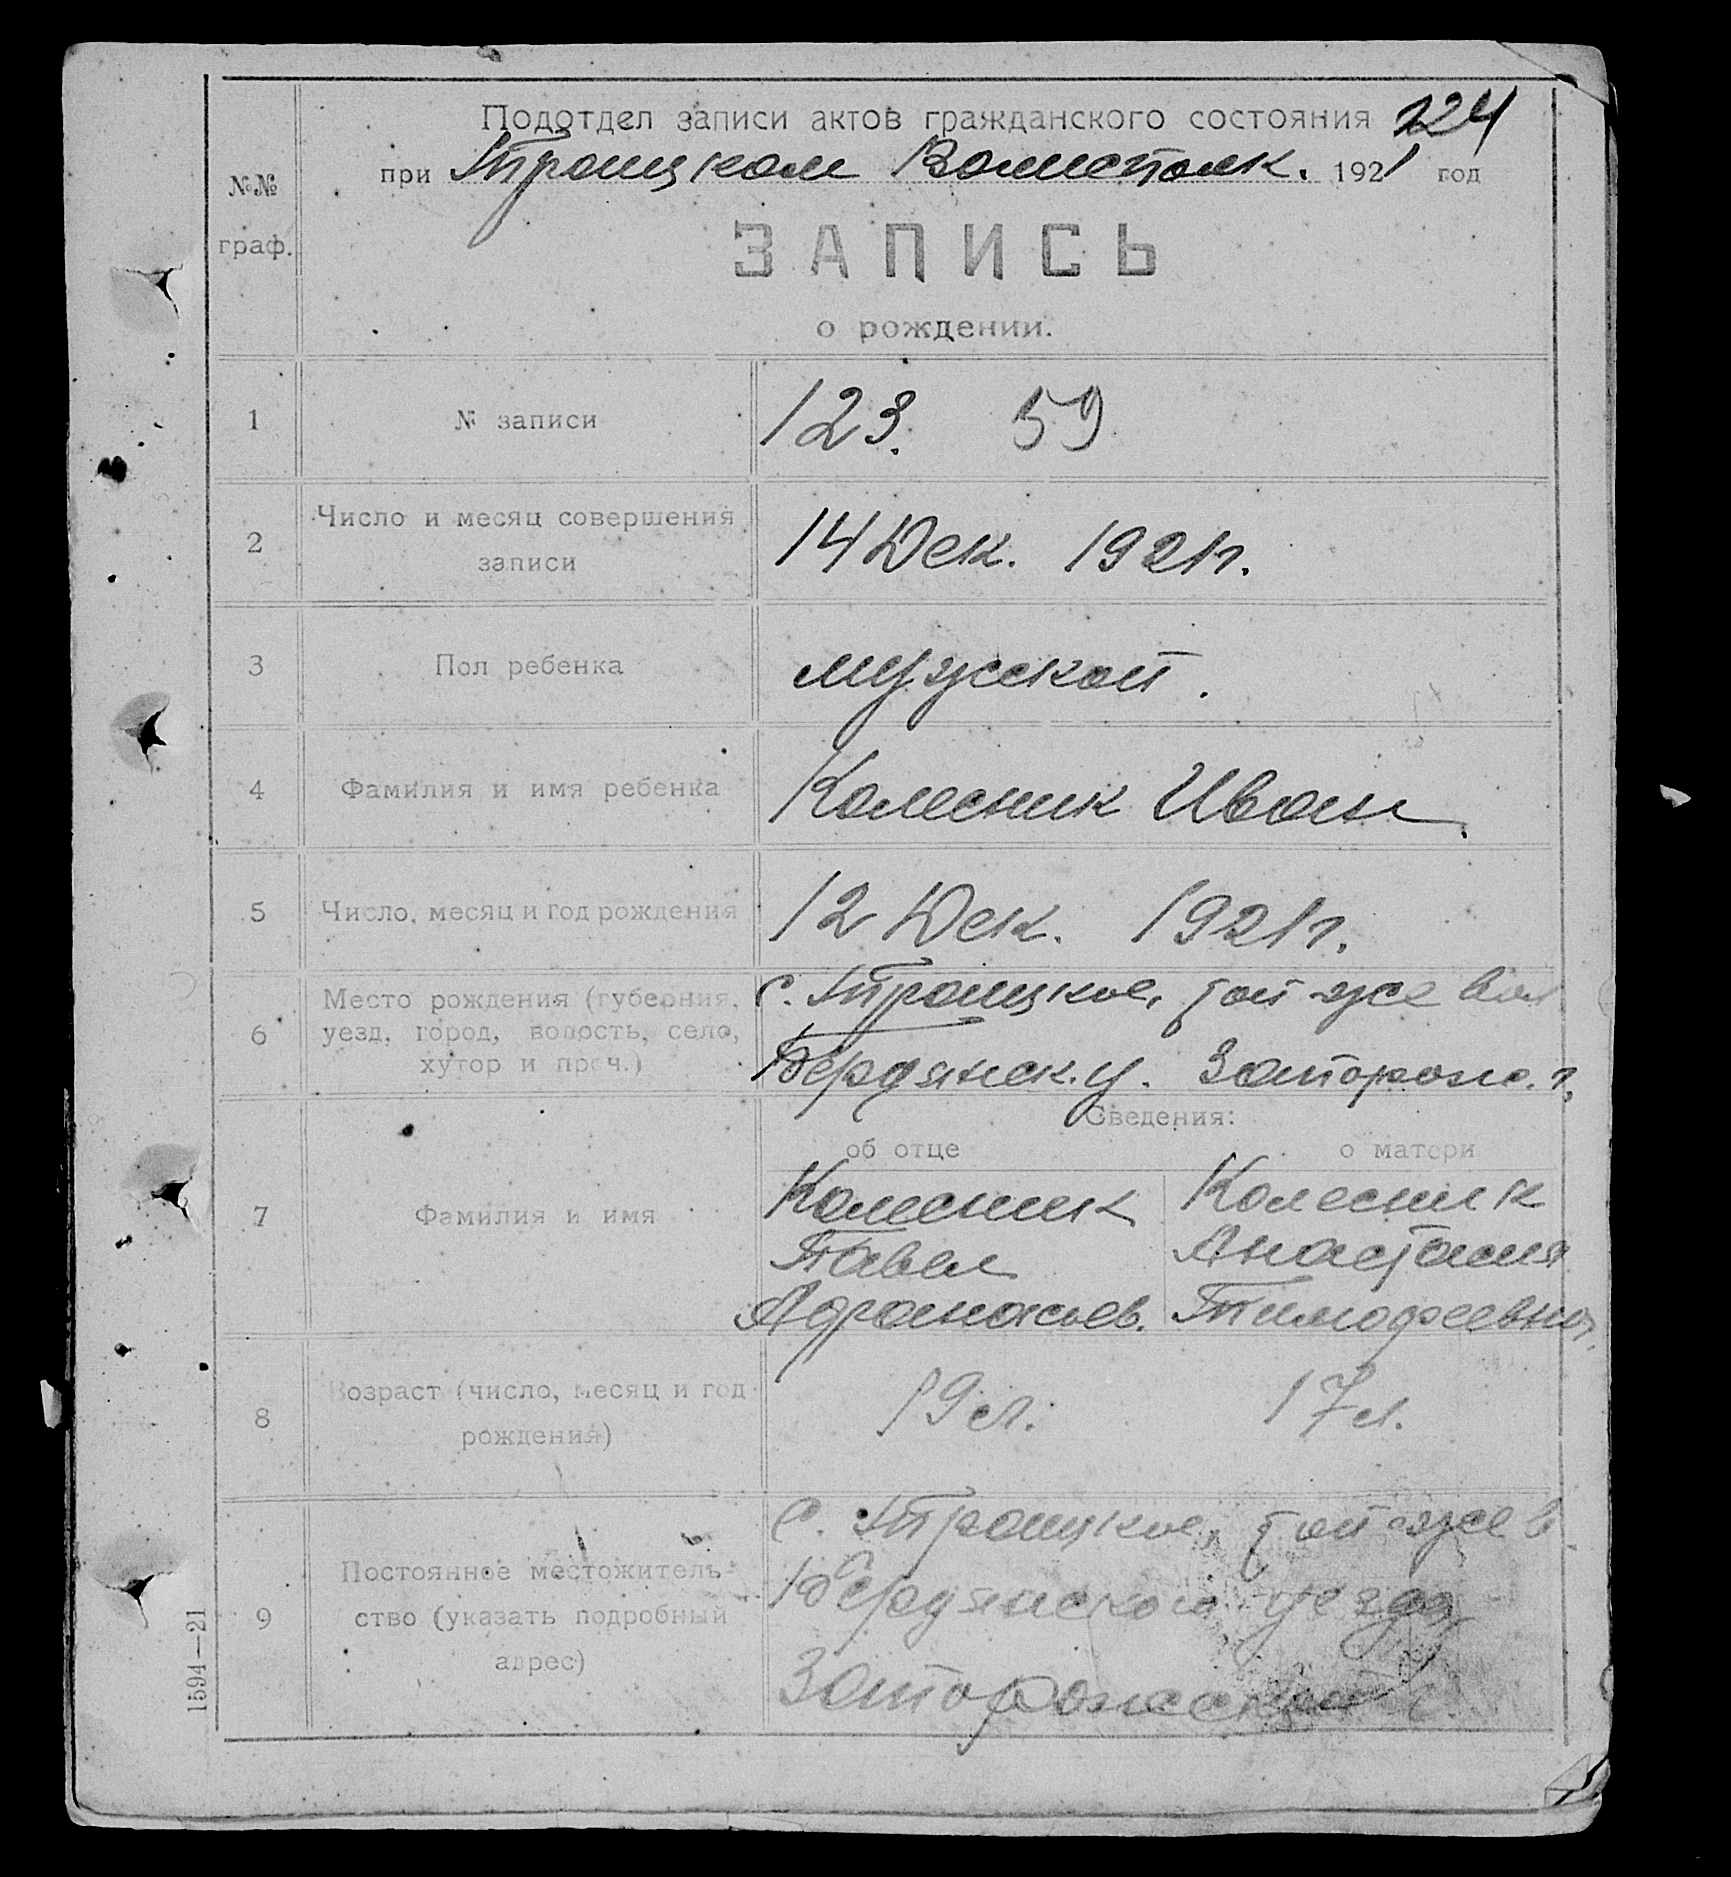 Подотдел записи актов гражданского состояния 224
при Троицком Волисполк. 1921 год
№№ граф.
ЗАПИСЬ
о рождении.
1 № записи 123. 59
2 Число и месяц совершения записи 14 Дек. 1921 г.
3 Пол ребенка мужской.
4 Фамилия и имя ребенка Колесник Иван.
5 Число, месяц и год рождения 12 Дек. 1921 г.
6 Место рождения (губерния, уезд, город, волость, село, хутор и проч.)
с. Троицкое, той же вол
Бердянск. у. Запорож. г,
Сведения:
об отце о матери
7 Фамилия и имя
Колесник Колесник
Павел Анастасия
Афанасьев. Тимофеевна,
8 Возраст (число, месяц и год рождения) 19 л. 17 л.
9 Постоянное местожитель-
ство (указать подробный
адрес)
с. Троицкое, той же в
Бердянского уезда
Запорожской г.
1594—21